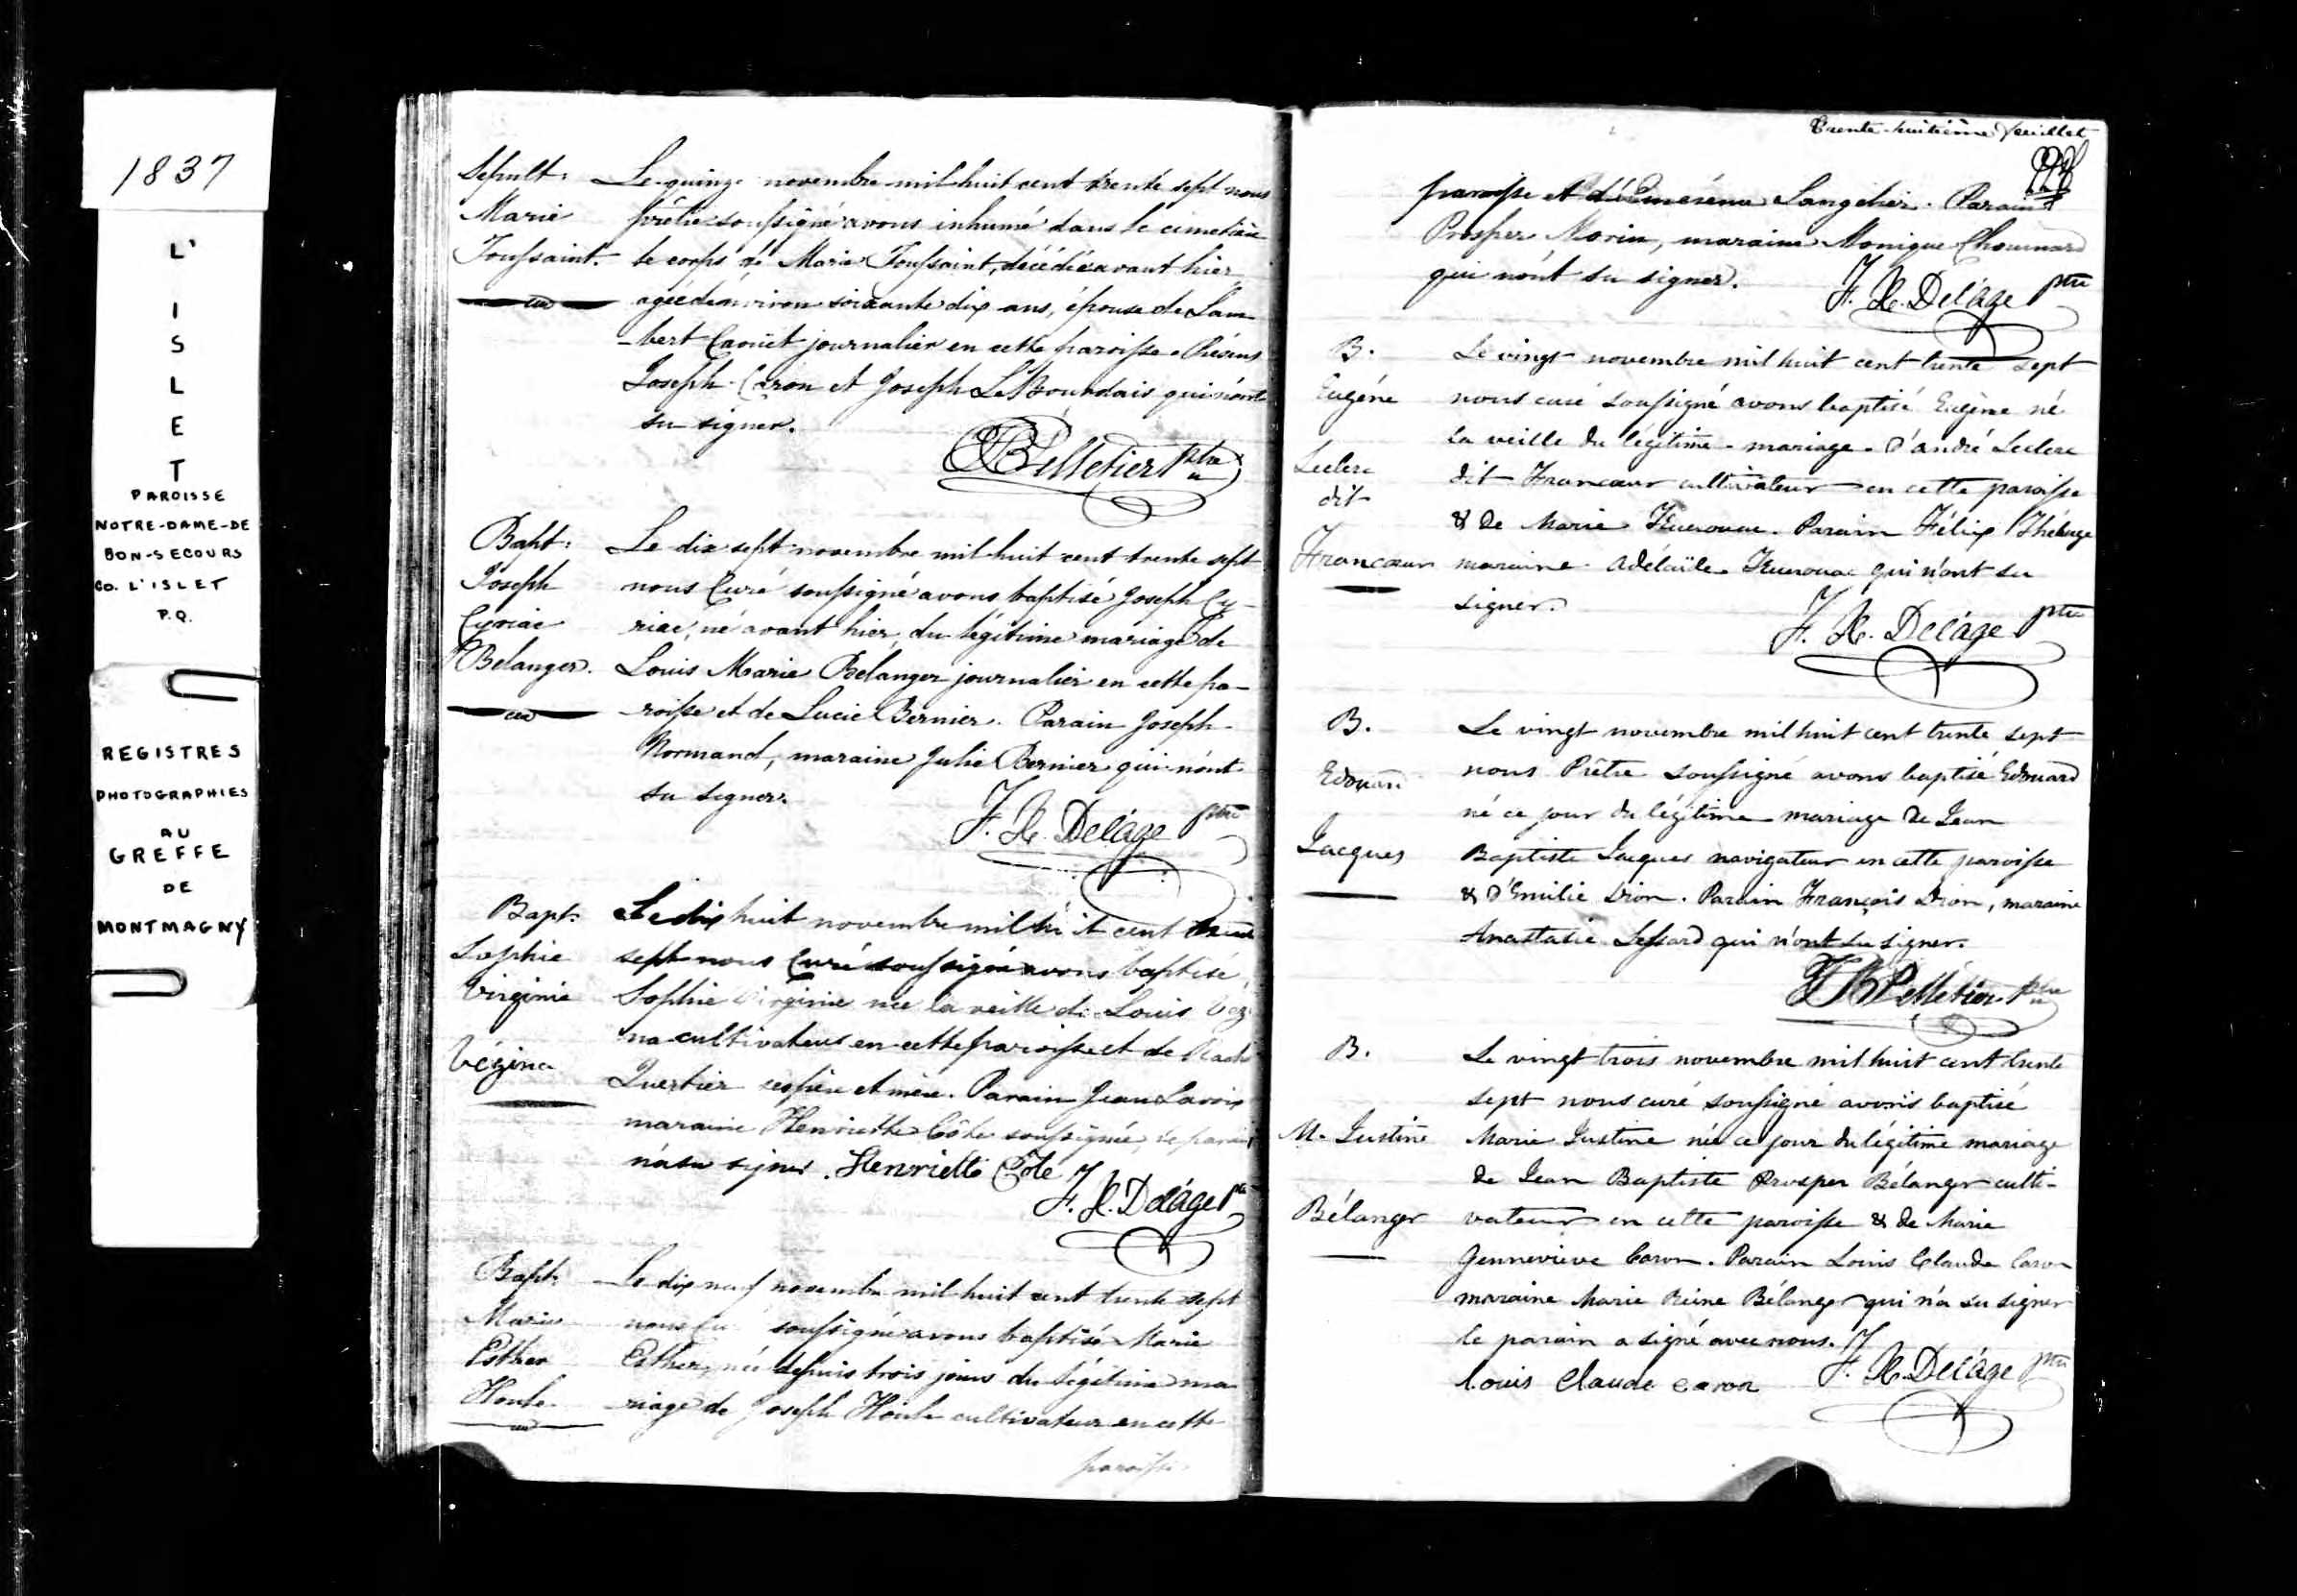 1837
L'
I
S
L
E
T
PAROISSE
NOTRE-DAME-DE
BON-SECOURS
CO. L'ISLET
P.Q.
REGISTRES
PHOTOGRAPHIES
AU
GREFFE
DE
MONTMAGNY
Sepult:
Marie
Toussaint.
Le quinze novembre mil huit cent trente sept nous
prêtre soussigné avons inhumé dans le cimetière
le corps de Marie Toussaint, décédée avant hier
agée d'environ soixante dix ans, épouse de Lam
-bert Caouet journalier en cette paroisse. Présens
Joseph Caron et Joseph LeBourdais qui n'ont
su signer.
Pelletier Ptre
Bapt:
Joseph
Cyriac
Belanger.
Le dix sept novembre mil huit cent trente sept
nous Curé soussigné avons baptisé Joseph Cy-
riac, né avant hier, du légitime mariage de
Louis Marie Belanger journalier en cette pa-
roisse et de Lucie Bernier. Parain Joseph
Normand, maraine Julie Bernier qui n'ont
su signer.
F. X. Delâge Ptre
Bapt:
Sophie
Virginie
Vézina
Le dix huit novembre mil huit cent trente
sept nous Curé soussigné avons baptisé
Sophie Virginie née la veille de Louis Vézi
na cultivateur en cette paroisse et de
Quertier ses père et mère. Parain Jean Lavoix
maraine Henriette Côté soussignée, le parain
n'a su signer. Henriette Côté
F. X. Delâge Ptre
Bapt:
Marie
Esther
Houle
Le dix neuf novembre mil huit cent trente sept
nous Cu soussigné avons baptisé Marie
Esther, née depuis trois jours du légitime ma
riage de Joseph Houle cultivateur en cette
paroisse
Trente-huitième feuillet
paroisse et d'Emérence Langelier. Parain
Prosper Morin, maraine Monique Chouinard
qui n'ont su signer.
F. X. Delâge Ptre
B.
Eugène
Leclerc
dit
Francœur
Le vingt novembre mil huit cent trente sept
nous curé soussigné avons baptisé Eugène né
la veille du légitime mariage d'André Leclerc
dit Francœur cultivateur en cette paroisse
& de Marie Kuerouac. Parain Félix Théberge
maraine Adélaïde Kuerouac qui n'ont su
signer.
F. X. Delâge Ptre
B.
Edouard
Jacques
Le vingt novembre mil huit cent trente sept
nous Prêtre soussigné avons baptisé Edouard
né ce jour du légitime mariage de Jean
Baptiste Jacques navigateur en cette paroisse
& d'Emilie Dion. Parain François Dion, maraine
Anastasie Lessard qui n'ont su signer.
Pelletier Ptre
B.
M. Justine
Bélanger
Le vingt trois novembre mil huit cent trente
sept nous curé soussigné avons baptisé
Marie Justine née ce jour du légitime mariage
de Jean Baptiste Prosper Bélanger culti-
vateur en cette paroisse & de Marie
Gennevieve Caron. Parain Louis Claude Caron
maraine Marie Reine Bélanger qui n'a su signer
le parain a signé avec nous.
Louis Claude Caron F. X. Delâge Ptre